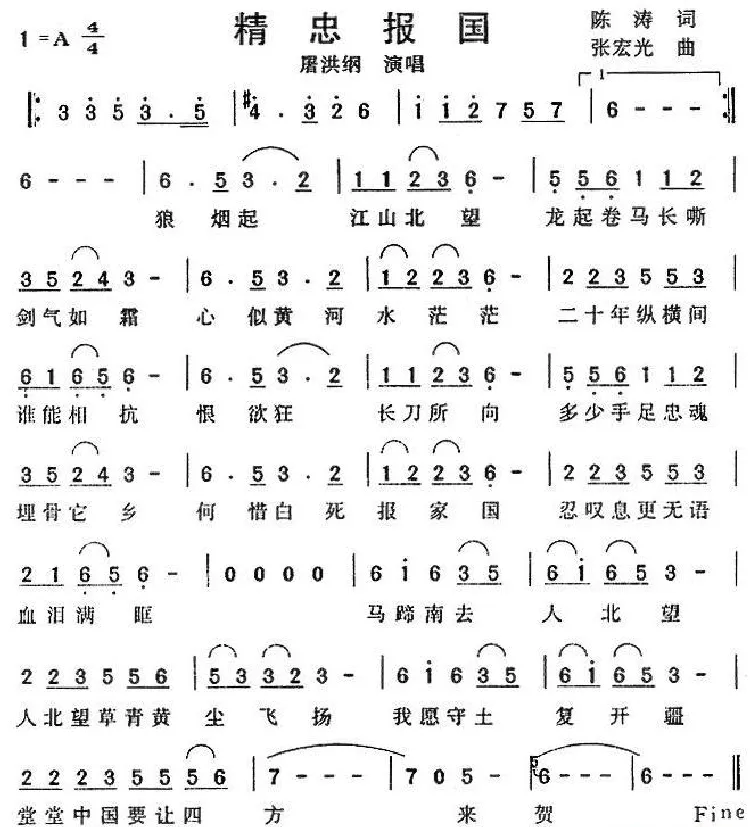 1=A 4/4 精忠报国 陈涛 词
屠洪纲 演唱 张宏光 曲
1
‖: 3 3 5 3 . 5 | #4 . 3 2 6 | 1 1 2 7 5 7 | 6 - - - :‖
6 - - - | 6 . 5 3 . 2 | 1 1 2 3 6 - | 5 5 6 1 1 2 |
狼 烟起 江山北 望 龙起卷马长嘶
3 5 2 4 3 - | 6 . 5 3 . 2 | 1 2 2 3 6 - | 2 2 3 5 5 3 |
剑气如 霜 心 似黄 河 水 茫 茫 二十年纵横间
6 1 6 5 6 - | 6 . 5 3 . 2 | 1 1 2 3 6 - | 5 5 6 1 1 2 |
谁能相 抗 恨 欲狂 长刀所 向 多少手足忠魂
3 5 2 4 3 - | 6 . 5 3 . 2 | 1 2 2 3 6 - | 2 2 3 5 5 3 |
埋骨它 乡 何 惜白 死 报 家 国 忍叹息更无语
2 1 6 5 6 - | 0 0 0 0 | 6 1 6 3 5 | 6 1 6 5 3 - |
血泪满 眶 马蹄南去 人 北 望
2 2 3 5 5 6 | 5 3 3 2 3 - | 6 1 6 3 5 | 6 1 6 5 3 - |
人北望草青黄 尘 飞 扬 我愿守土 复 开 疆
2 2 2 3 5 5 5 6 | 7 - - - | 7 0 5 - | 6 - - - | 6 - - - |
堂堂中国要让四 方 来 贺 Fine